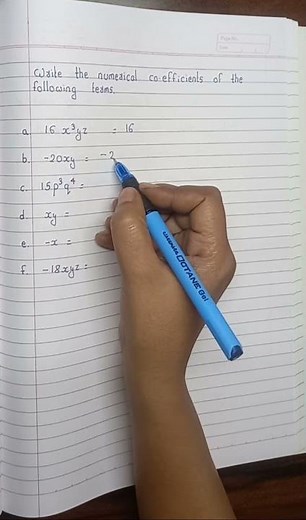 Write the numerical co-efficients of the
following terms.
a. 16 x³yz = 16
b. -20xy = -2
c. 15p³q⁴ =
d. xy =
e. -x =
f. -18xyz =
OCTANE Gel